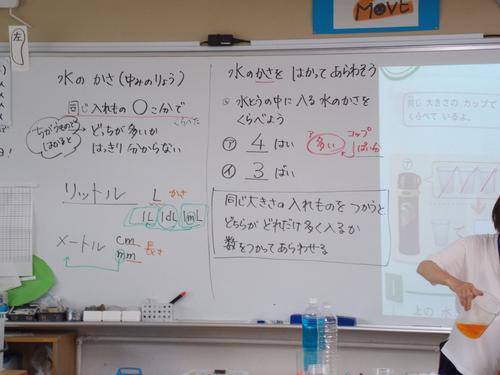 MOVE
左
水の かさ(中みのりょう)
同じ入れもの ○こ分で
くらべた
ちがうものではかると
→ どちが多いか
はっきり分からない
リットル L かさ
1L 1dL 1mL
メートル cm 長さ
mm
水のかさを はかって あらわそう
水とうの中に入る水のかさを
くらべよう
ア 4 はい
ア 多い コップ
1ぱい分
イ 3 ばい
同じ大きさの入れものをつかうと
どちらが どれだけ多く入るか
数をつかってあらわせる
同じ大きさのカップで
くらべているよ。
上の「水